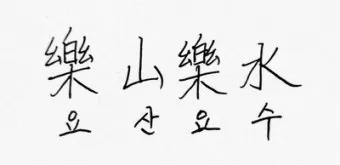 樂山樂水
요 산 요 수